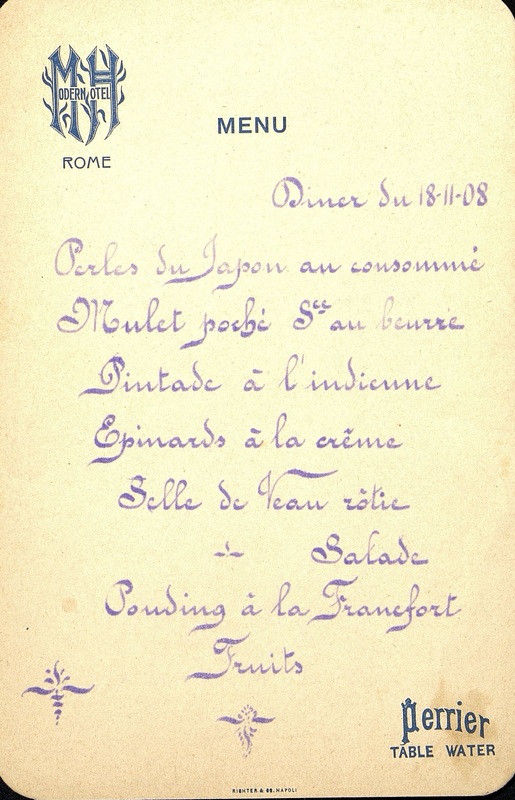 MODERN HOTEL
ROME
MENU
Diner du 18-11-08
Perles du Japon au consommé
Mulet poché Sce au beurre
Pintade à l'indienne
Epinards à la crême
Selle de Veau rôtie
Salade
Pouding à la Francfort
Fruits
Perrier
TABLE WATER
RICHTER & Co. NAPOLI